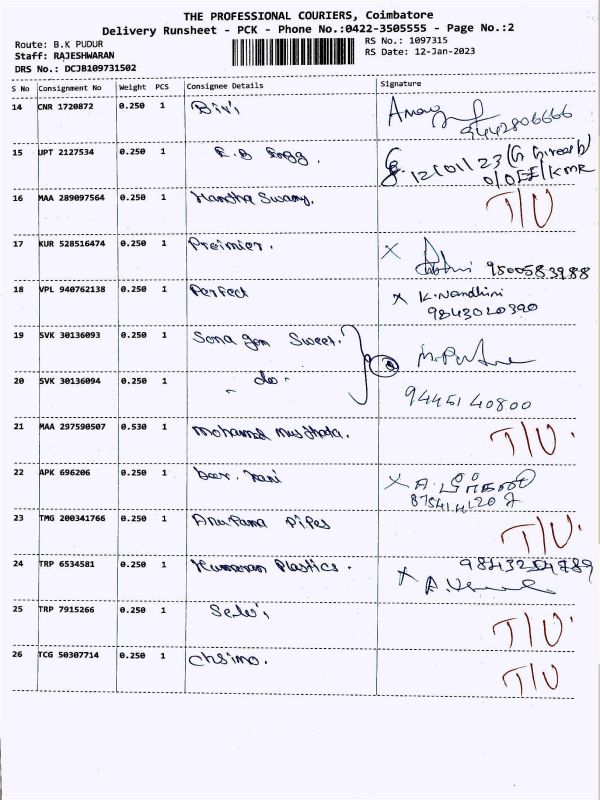 THE PROFESSIONAL COURIERS, Coimbatore
Delivery Runsheet - PCK - Phone No.:0422-3505555 - Page No.:2
Route: B.K PUDUR
RS No.: 1097315
Staff: RAJESHWARAN
RS Date: 12-Jan-2023
DRS No.: DCJB109731502
S No Consignment No Weight PCS Consignee Details Signature
14 CNR 1720872 0.250 1
9442806666
15 UPT 2127534 0.250 1
12/01/23
16 MAA 289097564 0.250 1 Swamy. T/U
17 KUR 528516474 0.250 1 Preimier. X
9500583988
18 VPL 940762138 0.250 1 Perfect X K. Nandhini
9843020390
19 SVK 30136093 0.250 1 Sona gon Sweet.
20 SVK 30136094 0.250 1 - do -
9445140800
21 MAA 297590507 0.530 1 T/U.
22 APK 696206 0.250 1 X
23 TMG 200341766 0.250 1 Anupama Pipes T/U.
24 TRP 6534581 0.250 1 Kumaran Plastics. X
25 TRP 7915266 0.250 1 Selvi T/U.
26 TCG 50307714 0.250 1 T/U